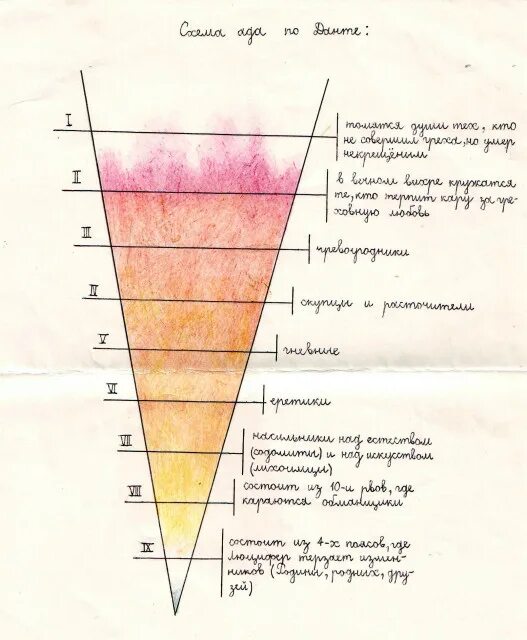 Схема ада по Данте:
I
томятся души тех, кто
не совершил греха, но умер
некрещёним
II
в вечном вихре кружатся
те, кто терпит кару за гре-
ховную любовь
III
чревоугодники
IV
скупцы и расточители
V
гневные
VI
еретики
VII
насильники над естеством
(содомиты) и над искусством
(лихоимцы)
VIII
состоит из 10-и рвов, где
караются обманщики
IX
состоит из 4-х поясов, где
Люцифер терзает измен-
ников (Родины, родних, дру-
зей)